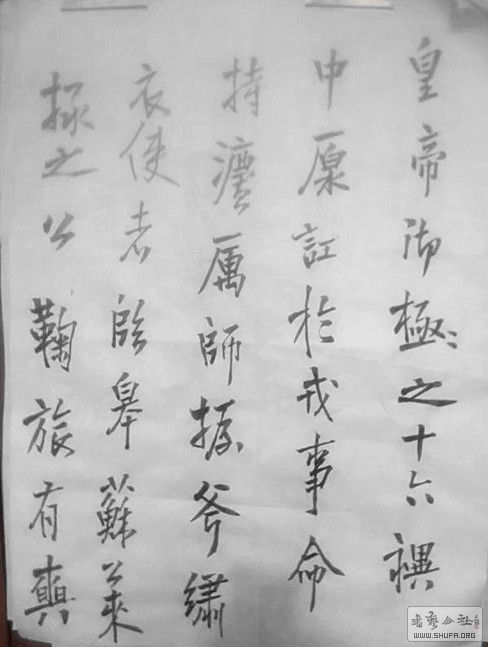 皇帝御極之十六禩
中原訌於戎事命
持厲師振斧繡
衣使者皋蘇萊
之公鞠旅有
書藝公社
WWW.SHUFA.ORG